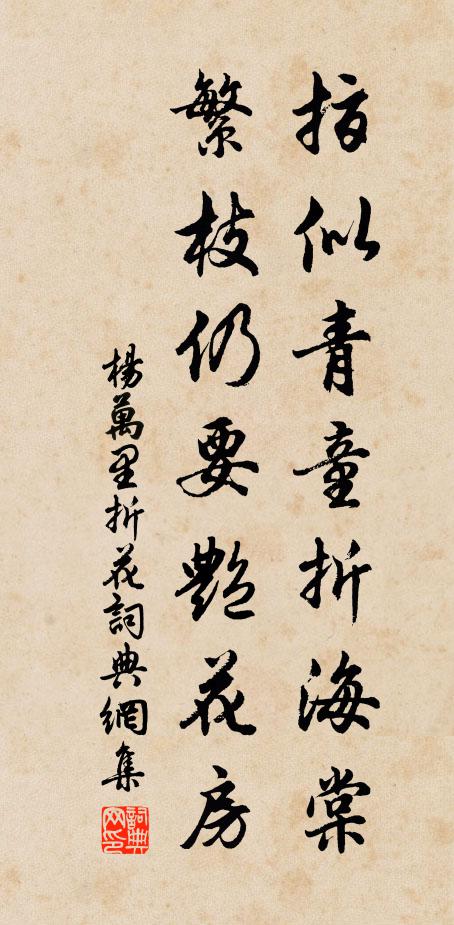 指似青童折海棠
繁枝仍要艷花房
楊萬里折花詞典網集
詞典網印